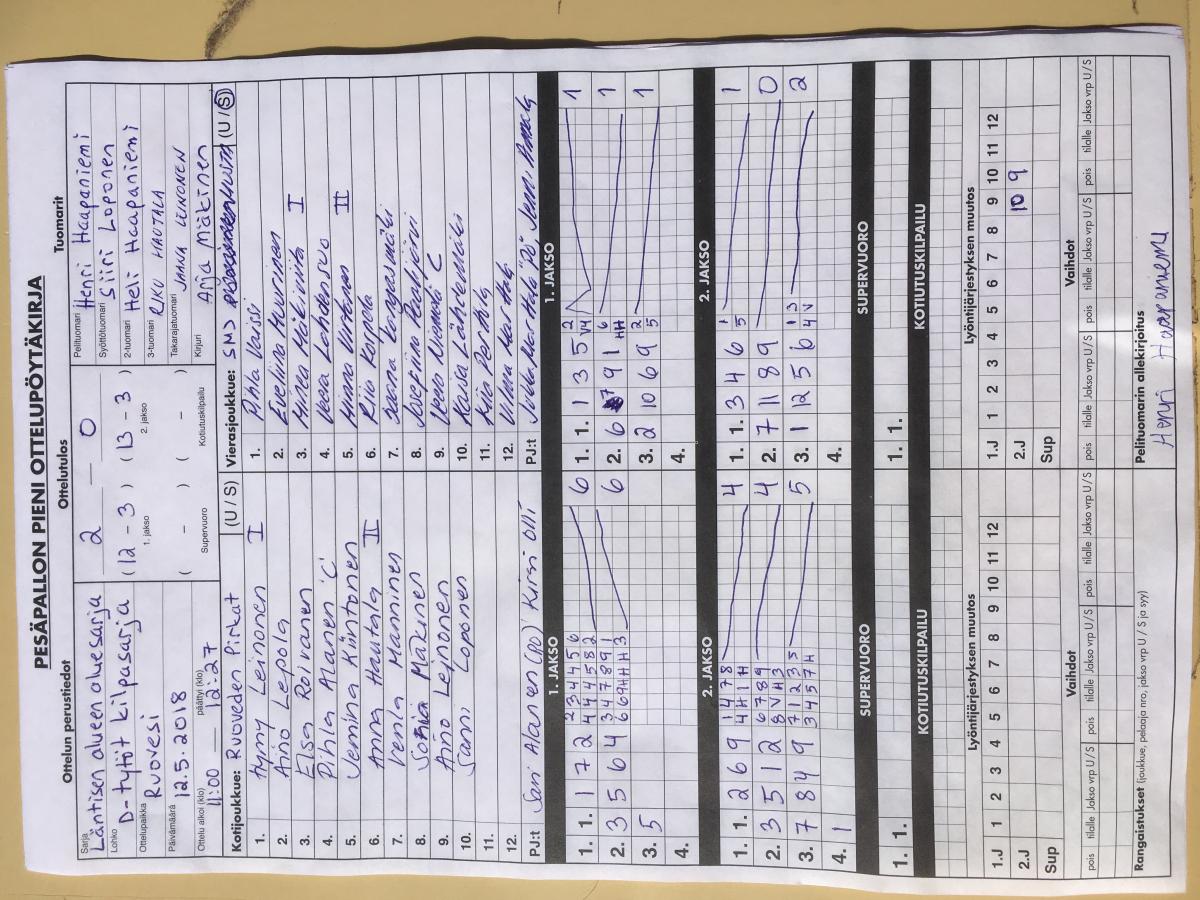 PESÄPALLON PIENI OTTELUPÖYTÄKIRJA
Ottelun perustiedot
Ottelutulos
Tuomarit
Sarja
Läntisen alueen aluesarja
Lohko
D-tytöt kilpasarja
Ottelupaikka
Ruovesi
Päivämäärä
12.5.2018
Ottelu alkoi (klo)
11:00
päättyi (klo)
12:27
2 — 0
(12 - 3) (13 - 3)
1. jakso
2. jakso
( - ) ( - )
Supervuoro
Kotiutuskilpailu
Pelituomari
Henri Haapaniemi
Syöttötuomari
Siiri Loponen
2-tuomari
Heli Haapaniemi
3-tuomari
RIKU HAUTALA
Takarajatuomari
JAANA LEINONEN
Kirjuri
Anja Mäkinen
Kotijoukkue: Ruoveden Pirkat (U / S)
1. Hymy Leinonen I
2. Aino Lepola
3. Elsa Roivanen
4. Pihla Alanen C
5. Jemina Kiintonen
6. Anna Hautala II
7. Venla Manninen
8. Mäkinen
9. Anno Leinonen
10. Sanni Loponen
11.
12.
PJ:t Sari Alanen (PO) Kirsi Olli
Vierasjoukkue: SMJ (U / S)
1. Pihla Vaissi
2. Eveliina Muurinen
3. Minea Mäkiniitu I
4. Veera Lahdensuo
5. Minna Virtanen II
6. Riia Korpela
7. Saara Kangasmäki
8. Josefina Paalijärvi
9. Venla Niemelä C
10. Kaisa Lähdemäki
11. Kiia Perthilä
12. Vilma Marttala
PJ:t
1. JAKSO
1. 1. 1 7 2 4 6
2. 3 5 6 4 6
3. 5
4.
1. JAKSO
1. 1. 1 3 5 1
2. 6 9 1 1
3. 2 10 6 9 1
4.
2. JAKSO
1. 1. 2 6 9 4
2. 3 5 1 2 4
3. 7 8 4 9 5
4. 1
2. JAKSO
1. 1. 3 4 6 1
2. 7 11 8 9 0
3. 1 12 5 6 2
4.
SUPERVUORO
1. 1.
SUPERVUORO
1. 1.
KOTIUTUSKILPAILU
KOTIUTUSKILPAILU
Lyöntijärjestyksen muutos
1.J 1 2 3 4 5 6 7 8 9 10 11 12
2.J
Sup
Lyöntijärjestyksen muutos
1.J 1 2 3 4 5 6 7 8 9 10 11 12
2.J 10 9
Sup
Vaihdot
pois tilalle Jakso vrp U/S pois tilalle Jakso vrp U/S pois tilalle Jakso vrp U/S
Vaihdot
pois tilalle Jakso vrp U/S pois tilalle Jakso vrp U/S pois tilalle Jakso vrp U/S
Rangaistukset (joukkue, pelaaja nro, jakso, vrp U / S ja syy)
Pelituomarin allekirjoitus
Henri Haapaniemi